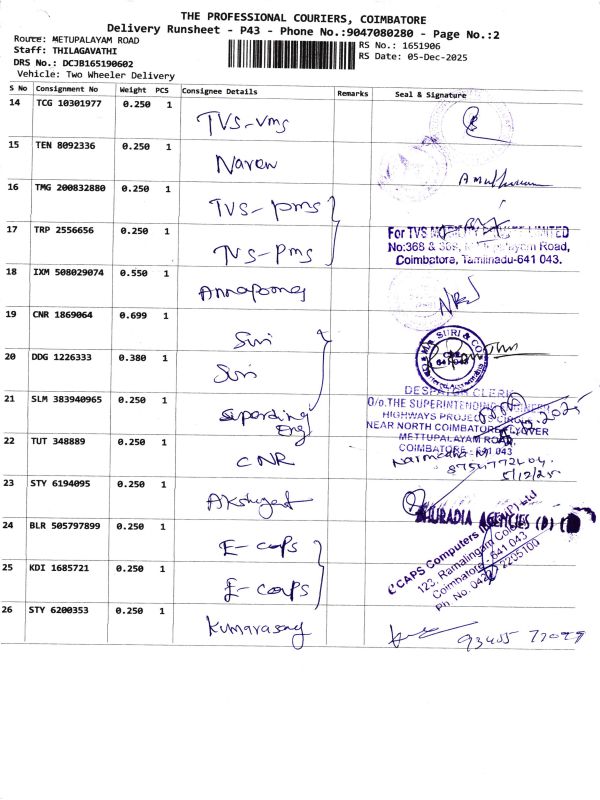 THE PROFESSIONAL COURIERS, COIMBATORE
Delivery Runsheet - P43 - Phone No.:9047080280 - Page No.:2
Route: METUPALAYAM ROAD
Staff: THILAGAVATHI
DRS No.: DCJB165190602
Vehicle: Two Wheeler Delivery
RS No.: 1651906
RS Date: 05-Dec-2025
S No Consignment No Weight PCS Consignee Details Remarks Seal & Signature
14 TCG 10301977 0.250 1 TVS-vms
15 TEN 8092336 0.250 1 Naren
16 TMG 200832880 0.250 1 TVS-pms
17 TRP 2556656 0.250 1 TVS-pms
For TVS LIMITED
No:368 & Road,
Coimbatore, Tamilnadu-641 043.
18 IXM 508029074 0.550 1 Annapoorna
19 CNR 1869064 0.699 1 Suri
20 DDG 1226333 0.380 1 Suri
SURI & CO
21 SLM 383940965 0.250 1 Suparding Eng
DESPATCH CLERK
O/o.THE SUPERINTENDING ENGINEER
HIGHWAYS PROJECTS CIRCLE
NEAR NORTH COIMBATORE FLYOVER
METTUPALAYAM ROAD,
COIMBATORE - 641 043
22 TUT 348889 0.250 1 CNR
5/12/25
23 STY 6194095 0.250 1
AGENCIES
24 BLR 505797899 0.250 1 E-caps
25 KDI 1685721 0.250 1 E-caps
E'CAPS Computers (P) Ltd
123, Ramalingam Colony
Coimbatore - 641 043
Ph No. 0422 2205100
26 STY 6200353 0.250 1 Kumarasamy